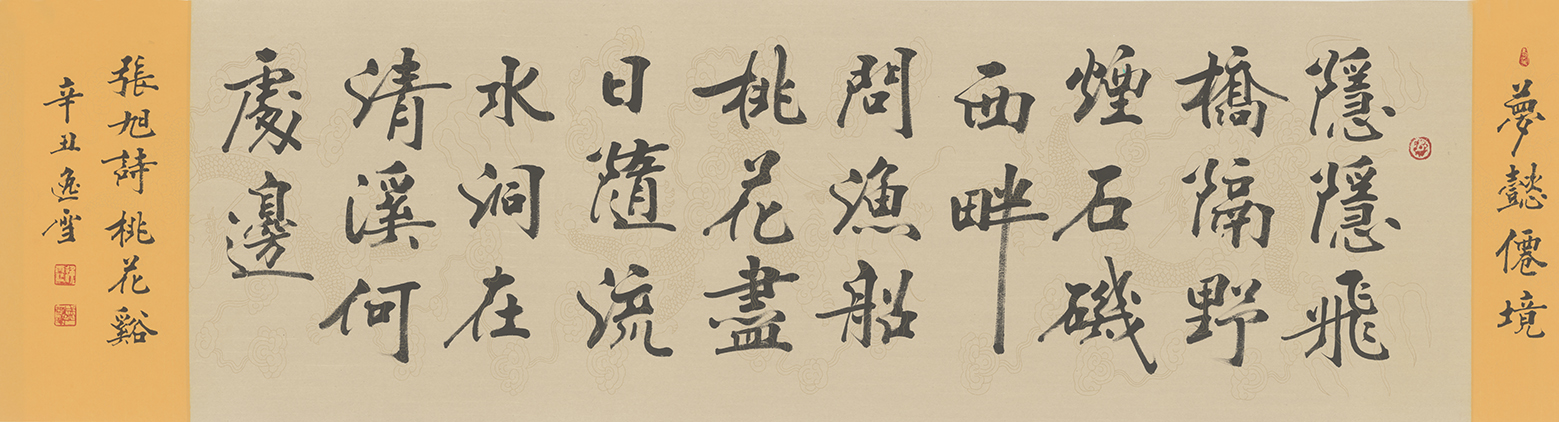 夢懿僊境
隱隱飛
橋隔野
煙石磯
西畔
問漁船
桃花盡
日隨流
水洞在
清溪何
處邊
張旭詩桃花谿
辛丑逸雪